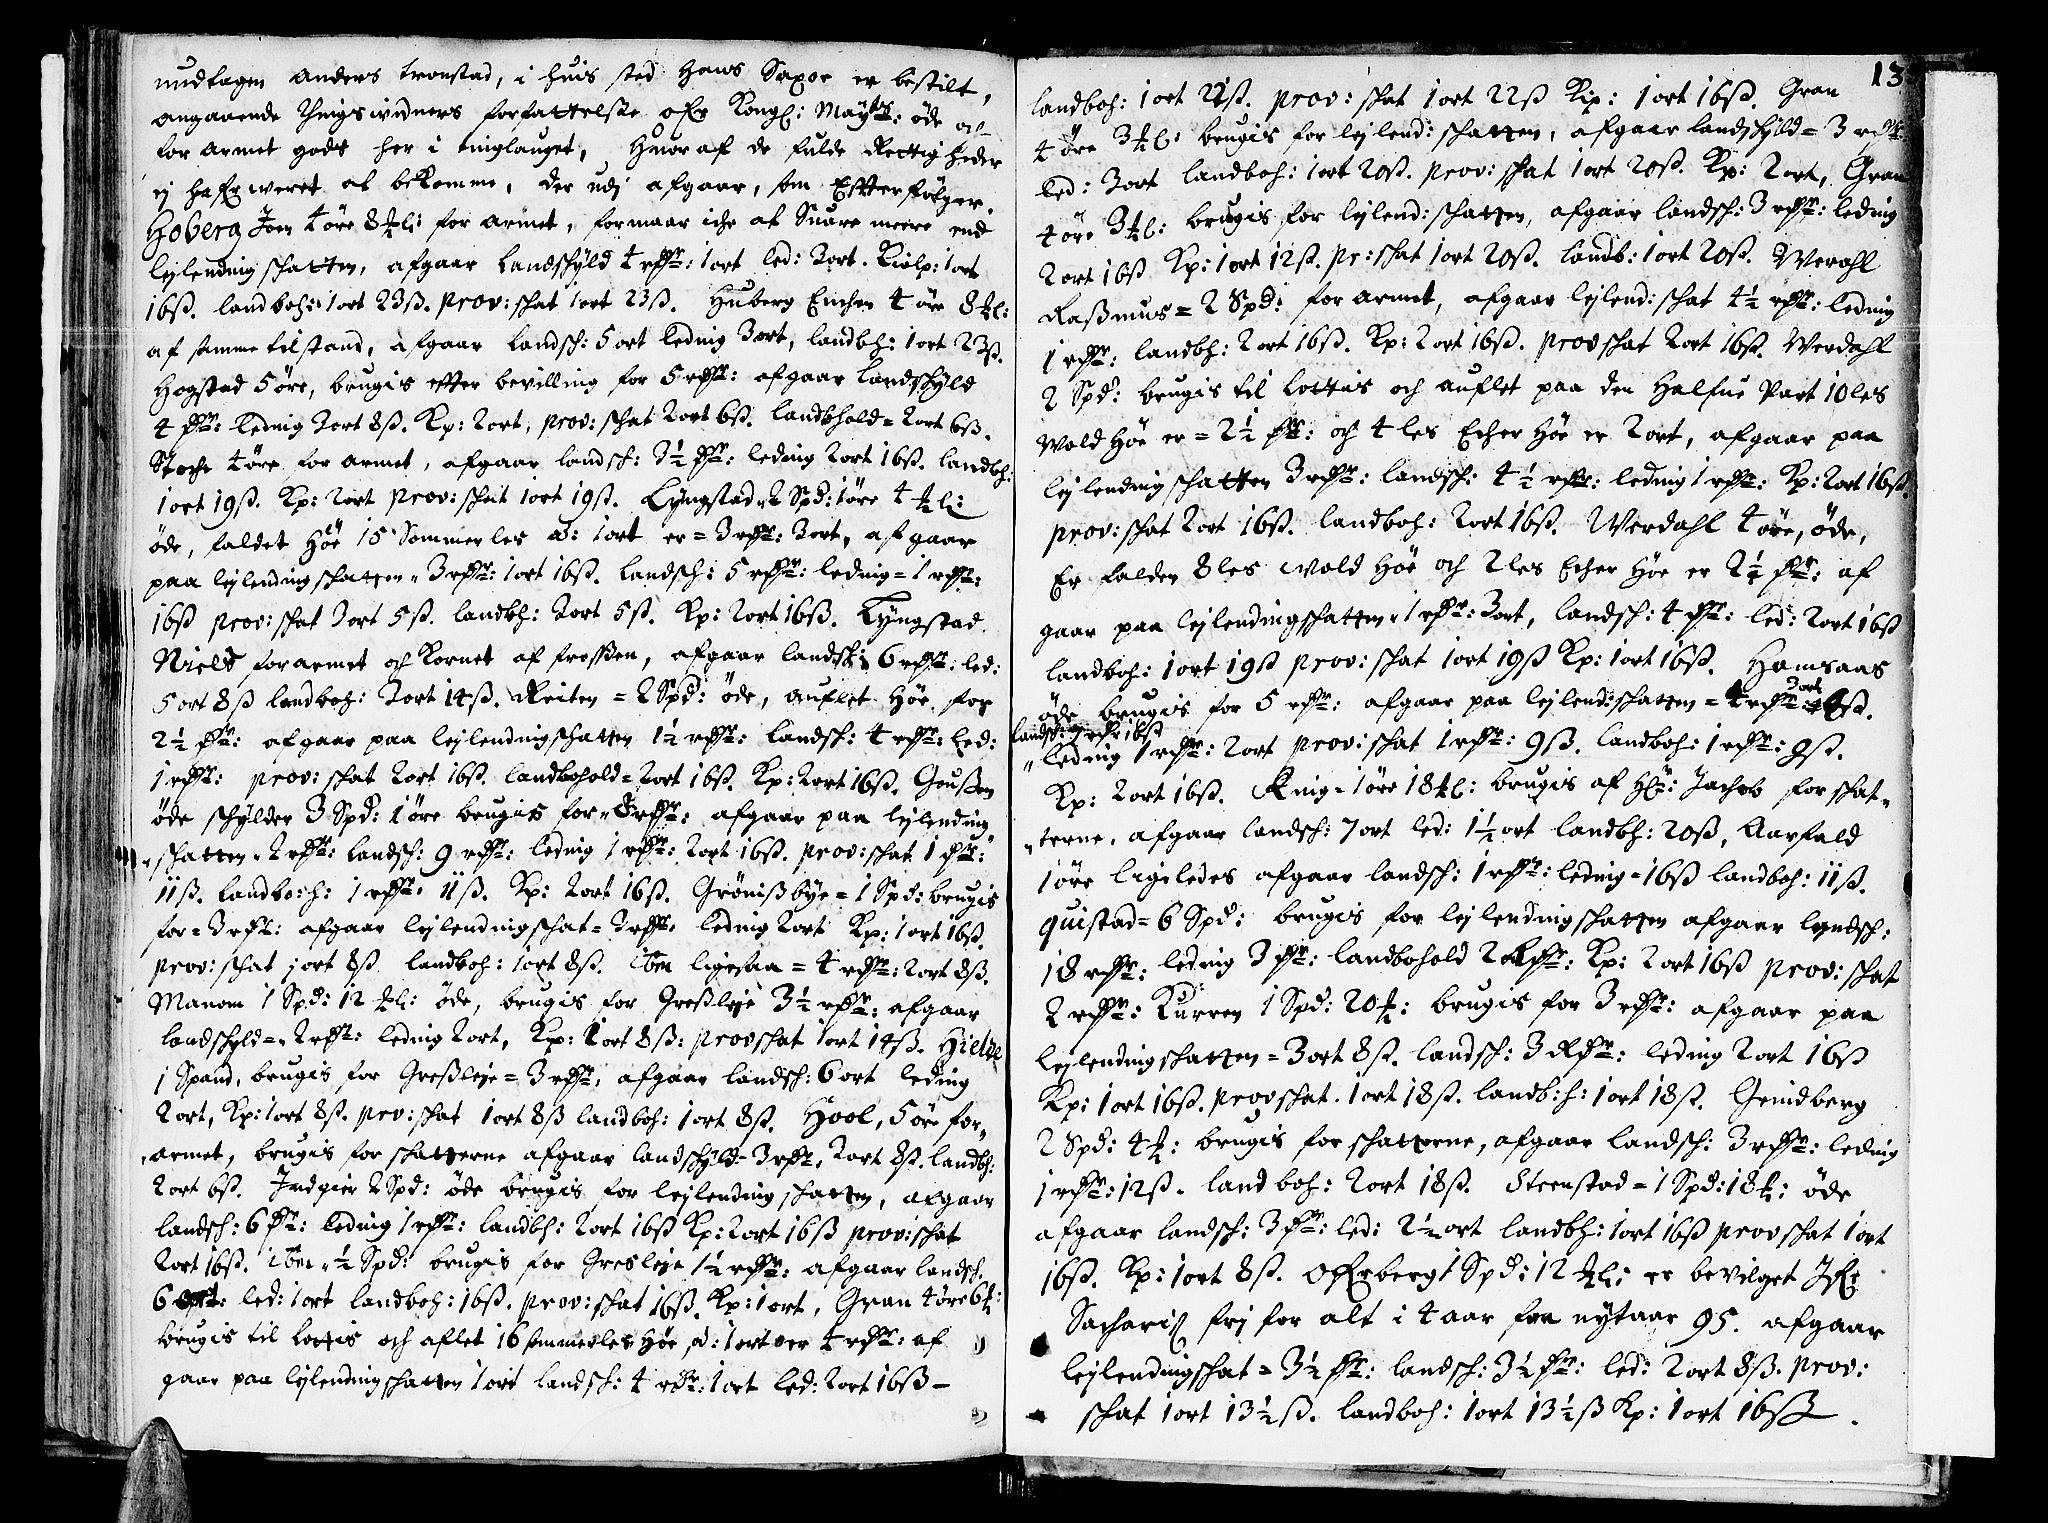 undtagen Anders tronstad, i huis sted Hans Saxoe er bestilt,
angaaende thingsvidners forfattelsse ofr Kongl: Mayts: öde och
forarmet gods her i tinglauget, Huoraf de fulde Rettigheder
ej hafr weret at bekomme, der udj afgaar, som Effterfölger.
Hoberg Joen 4 öre 8 ₰l: forarmet, formaar iche at Suare meere end
lejlending schatten, afgaar Landschyld 4 rdr: 1 ort led: 3 ort. Kielp: 1 ort
16ß. landboh: 1 ort 23ß. prov: schat 1 ort 23ß. Huberg Enchen 4 öre 8 ₰l:
af samme tilstand, afgaar Landsch: 5 ort leding 3 ort, landbh: 1 ort 23ß.
Hogstad 5 öre, brugis effter bevilling for 5 rdr: afgaar Landschyld
4 dr: leding 3 ort 8ß. Kp: 2 ort, prov: schat 2 ort 6ß. landbhold = 2 ort 6ß.
4 öre forarmet, afgaar landsch: 3½ dr: leding 2 ort 16ß. landbh:
1 ort 19ß. Kp: 2 ort prov: schat 1 ort 19ß. Lÿngstad 2 Spd: 1 öre 4 ₰l:
öde, faldet Höe 15 Sommerles ad: 1 ort er = 3 rdr: 3 ort, afgaar
paa lejlending schatten = 3 rdr: 1 ort 16ß. Landsch: 5 rdr: leding = 1 rdr:
16ß prov: schat 3 ort 5ß. landbh: 3 ort 5ß. Kp: 2 ort 16ß. Lÿngstad
Niels forarmet och Kornet af frossen, afgaar landsch: 6 rdr: led:
5 ort 8ß landboh: 3 ort 14ß. Reiten = 2 Spd: öde, auflet Höe for
2½ dr: afgaar paa lejlending schatten 1½ rdr: Landsch: 4 rdr: led:
1 rdr: prov: schat 2 ort 16ß. landbohold = 2 ort 16ß. Kp: 2 ort 16ß. Goußen
öde schÿlder 3 Spd: 1 öre brugis for = 8 rdr: afgaar paa lejlending
schatten = 2 rdr: Landsch: 9 rdr: leding 1 rdr: 2 ort 16ß. prov: schat 1 dr:
11ß. landbo:h: 1 rdr: 11ß. Kp: 2 ort 16ß. Grönißbÿe = 1 Spd: brugis
for = 3 rdr: afgaar lejlending schat = 3 rdr: leding 2 ort Kp: 1 ort 16ß.
prov: schat 1 ort 8ß landboh: 1 ort 8ß. ibm ligesaa = 4 rdr: 2 ort 8ß.
Manom 1 Spd: 12 ₰l: öde, brugis for Greßleje 3½ rdr: afgaar
landschyld = 2 rdr: leding 2 ort, Kp: 1 ort 8ß: provschat 1 ort 14ß.
1 Spand, brugis for Greßleje = 3 rdr: afgaar landsch: 6 ort leding
2 ort, Kp: 1 ort 8ß. prv: schat 1 ort 8ß landboh: 1 ort 8ß. Hool, 5 öre for,
armet, brugis for schatterne afgaar landschyld = 3 rdr: 2 ort 8ß. landbh:
2 ort 6ß. Indgier 2 Spd: öde brugis for lejlending schatten, afgaar
landsch: 6 dr: leding 1 rdr: landbh: 2 ort 16ß Kp: 2 ort 16ß prov: schat
2 ort 16ß. ibm = ½ Spd: brugis for Gresleje 1½ rdr: afgaar landsch.
6 ort: led: 1 ort landboh: 16ß. prov: schat 16ß. Kp: 1 ort, Gran 4 öre 6 ₰:
brugis til Lottis och aflet 16 sommerles Höe, ad: 1 ort er 4 rdr: af
gaar paa lejlending schatten 1 ort landsch: 4 rdr: 1 ort led: 2 ort 16ß -
13
landboh: 1 ort 22ß. prov: schat 1 ort 22ß Kip: 1 ort 16ß. Gran
4 öre 3 ₰l: brugis for lejlend: schatten, afgaar landschyld = 3 rdr:
led: 3 ort landboh: 1 ort 20ß. prov: schat 1 ort 20ß. Kp: 2 ort, Gran
4 öre 3 ₰l: brugis for lejlend: schatten, afgaar landsch: 3 rdr: leding
2 ort 16ß Kp: 1 ort 12ß. pr: schat 1 ort 20ß. landb: 1 ort 20ß. Werahl
Raßmus = 2 Spd: forarmet, afgaar lejlend: schat 4½ rdr: leding
1 rdr: landbh: 2 ort 16ß. Kp: 2 ort 16ß. provschat 2 ort 16ß. Werdahl
2 Spd: brugis til Lottis och auflet paa den Halfue Part 10 les
Wold Höe er = 2½ dr: och 4 les Echer Höe er 2 ort, afgaar paa
lejlending schatten 3 rdr: landsch: 4½ rdr: leding 1 rdr: Kp: 2 ort 16ß.
prov: schat 2 ort 16ß. landboh: 2 ort 16ß. Werdahl 4 öre, öde,
Er falden 8 les wold Höe och 2 les Echer Höe er 2½ dr: af
gaar paa lejlending schatten = 1 rdr: 3 ort, landsch: 4 dr: led: 2 ort 16ß
landboh: 1 ort 19ß prov: schat 1 ort 19ß Kp: 1 ort 16ß. Hamsaas
öde brugis for 5 rdr: afgaar paa lejlend: schatten = 4 rdr: 3 ort 4ß.
landsch: 9 rdr 16ß
leding 1 rdr: 2 ort prov: schat 1 rdr: 9ß. landboh: 1 rdr: 9ß.
Kp: 2 ort 16ß. Ring = 1 öre 18 ₰l: brugis af Hr: Jachob for schat=
terne, afgaar landsch: 7 ort led: 1½ ort landbh: 20ß, Aarfald
1 öre ligeledes afgaar landsch: 1 rdr: leding = 16ß landboh: 11ß.
quistad = 6 Spd: brugis for lejlending schatten afgaar landsch:
18 rdr: leding 3 dr: landbohold 2 Rdr: Kp: 2 ort 16ß prov: schat
2 rdr: Kurren 1 Spd: 20 ₰: brugis for 3 rdr: afgaar paa
lejlending schatten = 3 ort 8ß. landsch: 3 Rdr: leding 2 ort 16ß
Kp: 1 ort 16ß. provschat. 1 ort 18ß. landb:h: 1 ort 18ß. Grindberg
2 Spd: 4 ₰: brugis for schatterne, afgaar landsch: 3 rdr: leding
1 rdr: 12ß. landboh: 2 ort 18ß. Steenstad = 1 Spd: 18 ₰: öde
afgaar landsch: 3 dr: led: 2½ ort landbh: 1 ort 16ß provschat 1 ort
16ß. Kp: 1 ort 8ß. Ofrberg 1 Spd: 12 ₰l: er bevilget Ifr
Zachariß frj for alt i 4 aar fra nytaar 95. afgaar
lejlending schat = 3½ dr: landsch: 3½ dr: led: 2 ort 8ß. prov:
schat 1 ort 13½ß. landboh: 1 ort 13½ß Kp: 1 ort 16ß.